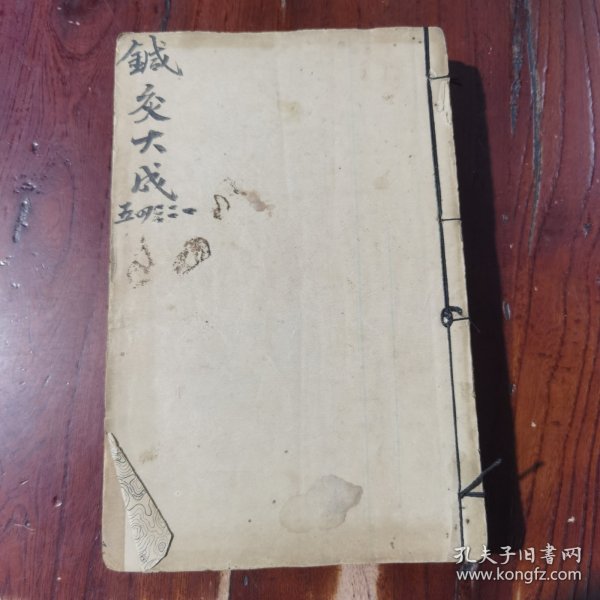 鍼灸大成
五四三二一
孔夫子旧書网
www.kongfz.com